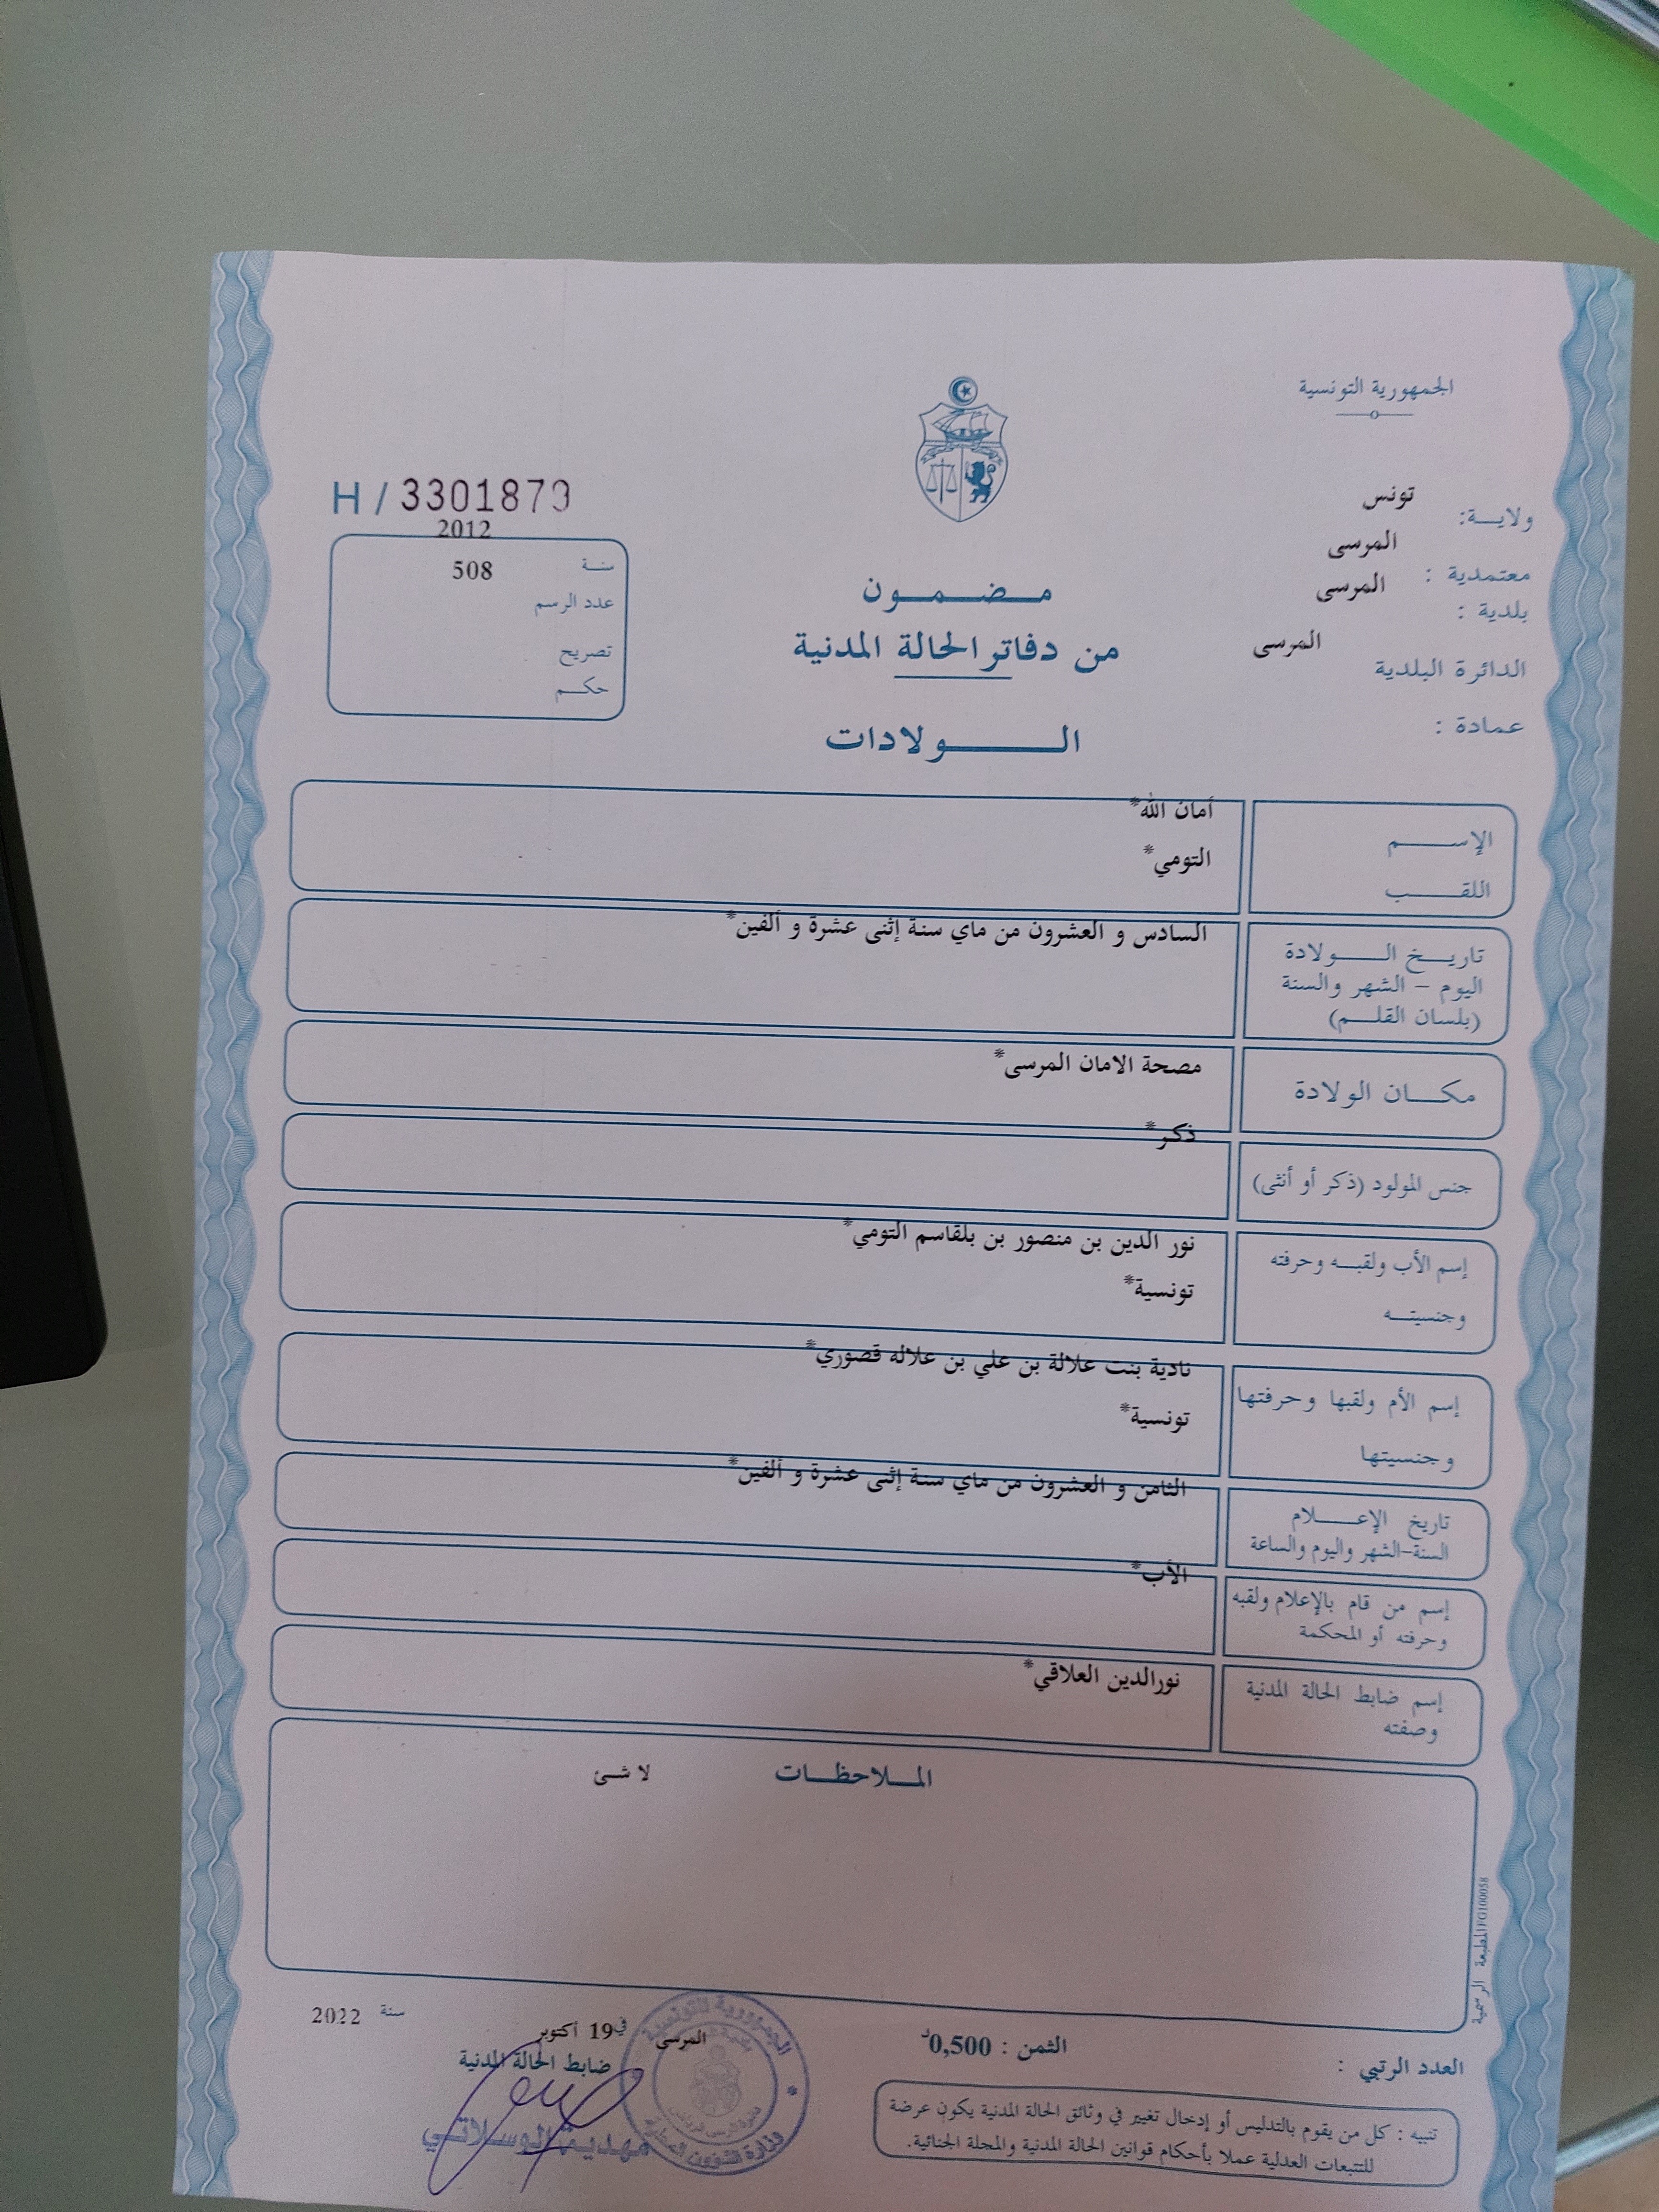 الجمهورية التونسية
ولايـــة: تونس
معتمدية : المرسى
بلدية : المرسى
الدائرة البلدية المرسى
عمادة :
مـــضـــمـــون
من دفاتر الحالة المدنية
الـــــولادات
H / 3301879
2012
سنـــة
508
عدد الرسم
تصريح
حكـــم
الإســـــم أمان الله*
اللقـــــب التومي*
تاريـــخ الـــــولادة السادس و العشرون من ماي سنة إثنى عشرة و ألفين*
اليوم – الشهر والسنة
(بلسان القلـــم)
مكـــان الولادة مصحة الامان المرسى*
جنس المولود (ذكر أو أنثى) ذكر*
إسم الأب ولقبـــه وحرفته نور الدين بن منصور بن بلقاسم التومي*
وجنسيتـــه تونسية*
إسم الأم ولقبها وحرفتها نادية بنت علالة بن علي بن علاله قصوري*
وجنسيتها تونسية*
تاريخ الإعـــــلام الثامن و العشرون من ماي سنة إثنى عشرة و ألفين*
السنة-الشهر واليوم والساعة
إسم من قام بالإعلام ولقبه الأب*
وحرفته أو المحكمة
إسم ضابط الحالة المدنية نورالدين العلاقي*
وصفته
المـــلاحظـــات لا شئ
المطبعة الرسمية
العدد الرتبي :
الثمن : 0,500د
المرسى في 19 أكتوبر سنة 2022
ضابط الحالة المدنية
مهدية الوسلاتي
الجمهورية التونسية
تنبيه : كل من يقوم بالتدليس أو إدخال تغيير في وثائق الحالة المدنية يكون عرضة
للتتبعات العدلية عملا بأحكام قوانين الحالة المدنية والمجلة الجنائية.